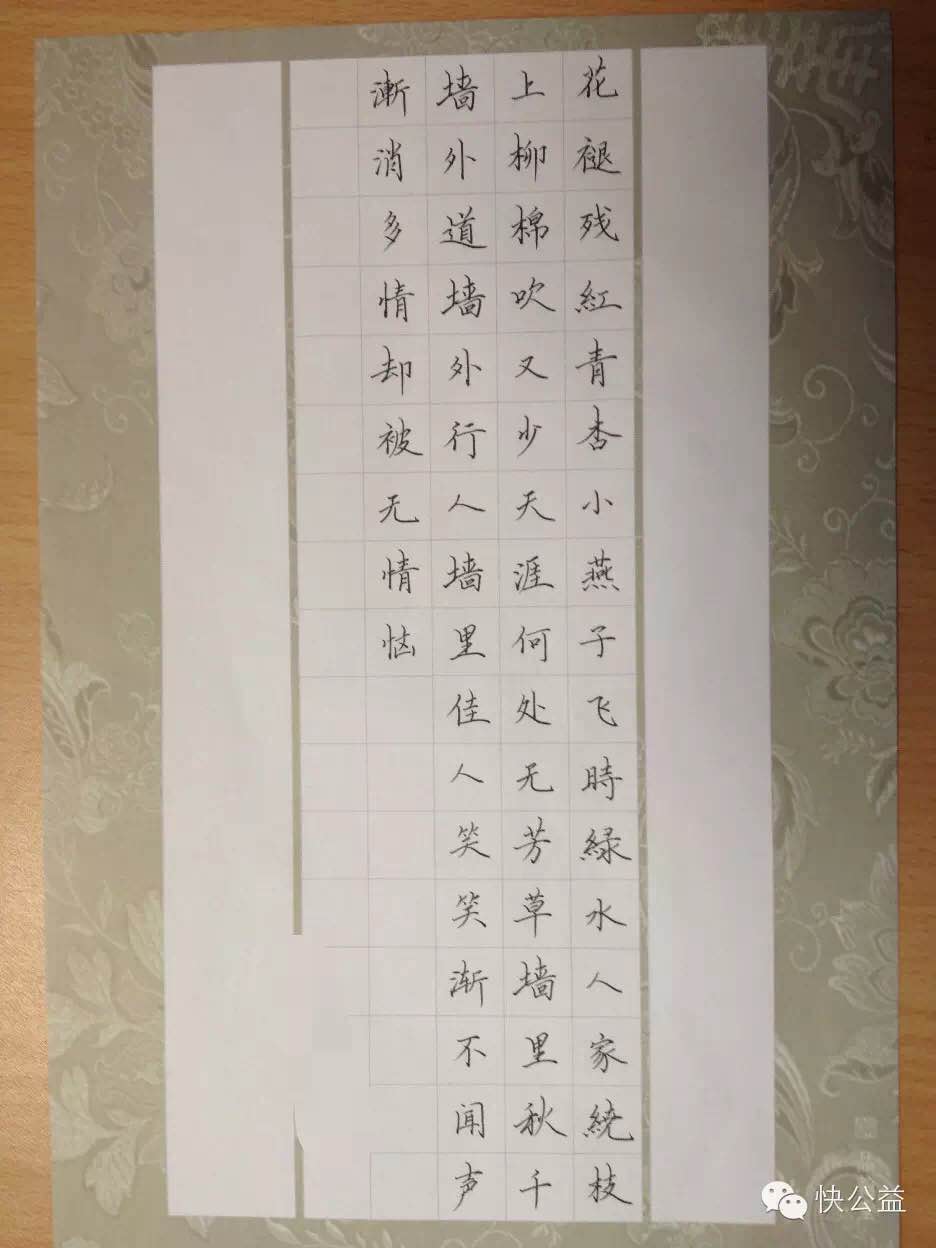 花褪残紅青杏小燕子飞時緑水人家繞枝
上柳棉吹又少天涯何处无芳草墙里秋千
墙外道墙外行人墙里佳人笑笑渐不闻声
漸消多情却被无情恼
快公益